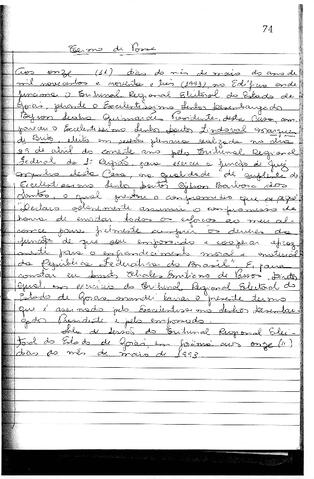 74
Termo de Posse
Aos onze (11) dias do mês de maio do ano de
mil novecentos e noventa e três (1993), no Edifício onde
funciona o Tribunal Regional Eleitoral do Estado de
Goiás, perante o Excelentíssimo Senhor Desembargador
Byron Seabra Guimarães, Presidente desta Casa, com
pareceu o Excelentíssimo Senhor Doutor Lindoval Marques
de Brito, eleito em sessão plenária realizada no dia
de abril do corrente ano pelo Tribunal Regional
Federal da 1ª Região para exercer a função de Juiz
desta Casa, na qualidade de suplente do
Excelentíssimo Senhor Doutor Barbosa dos
Santos, o qual prestou o compromisso
"Declaro solenemente assumir o compromisso de
honra de envidar todos os esforços ao meu al
cance para fielmente cumprir os deveres da
função de que sou empossado e cooperar eficaz
mente para o engrandecimento moral e material
da República Federativa do Brasil". E para
constar eu Emiliano de Passos, Diretor
Geral em exercício do Tribunal Regional Eleitoral do
Estado de Goiás, mandei lavrar o presente termo
que é assinado pelo Excelentíssimo Senhor Desembar
gador Presidente e pelo empossado.
Sala de Sessões do Tribunal Regional Elei-
toral do Estado de Goiás, em Goiânia, aos onze (11)
dias do mês de maio de 1993.